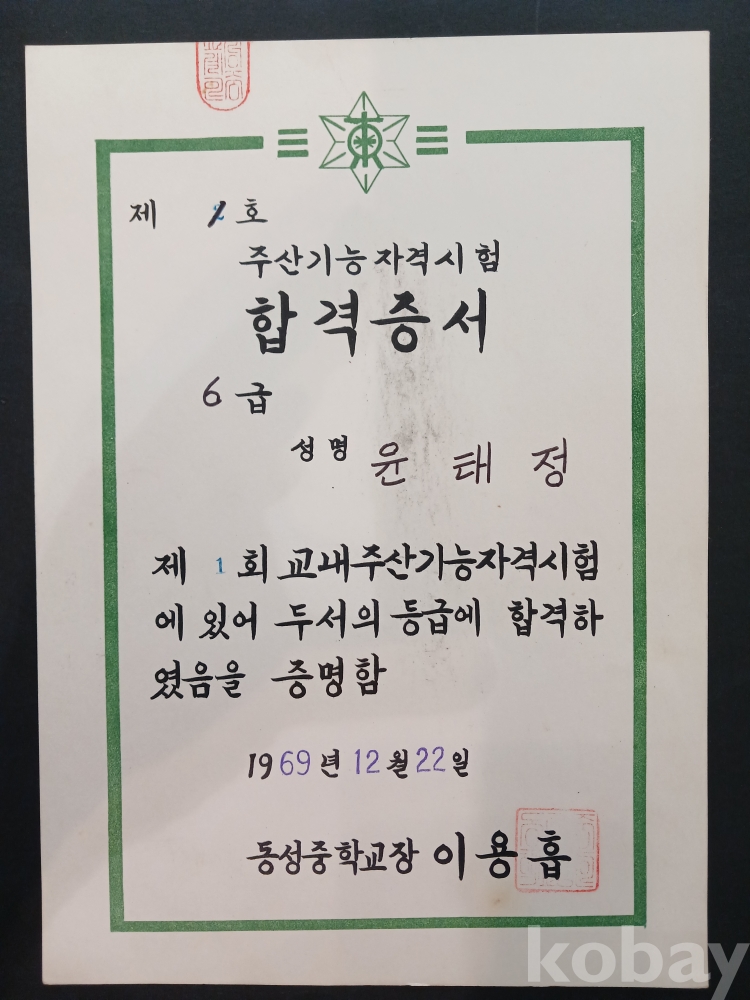 東
제 호
주산기능자격시험
합격증서
6급
성명 윤태정
제 1 회 교내주산기능자격시험
에 있어 두서의 등급에 합격하
였음을 증명함
1969년 12월 22일
동성중학교장 이용흡
kobay